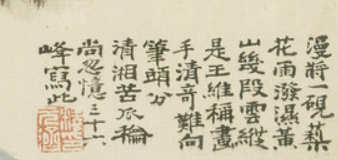 漫將一硯棃
花雨潑濕黃
山幾段雲縱
是王維稱畫
手清奇難向
筆頭分
清湘苦瓜龢
尚忽憶三十六
峰寫此